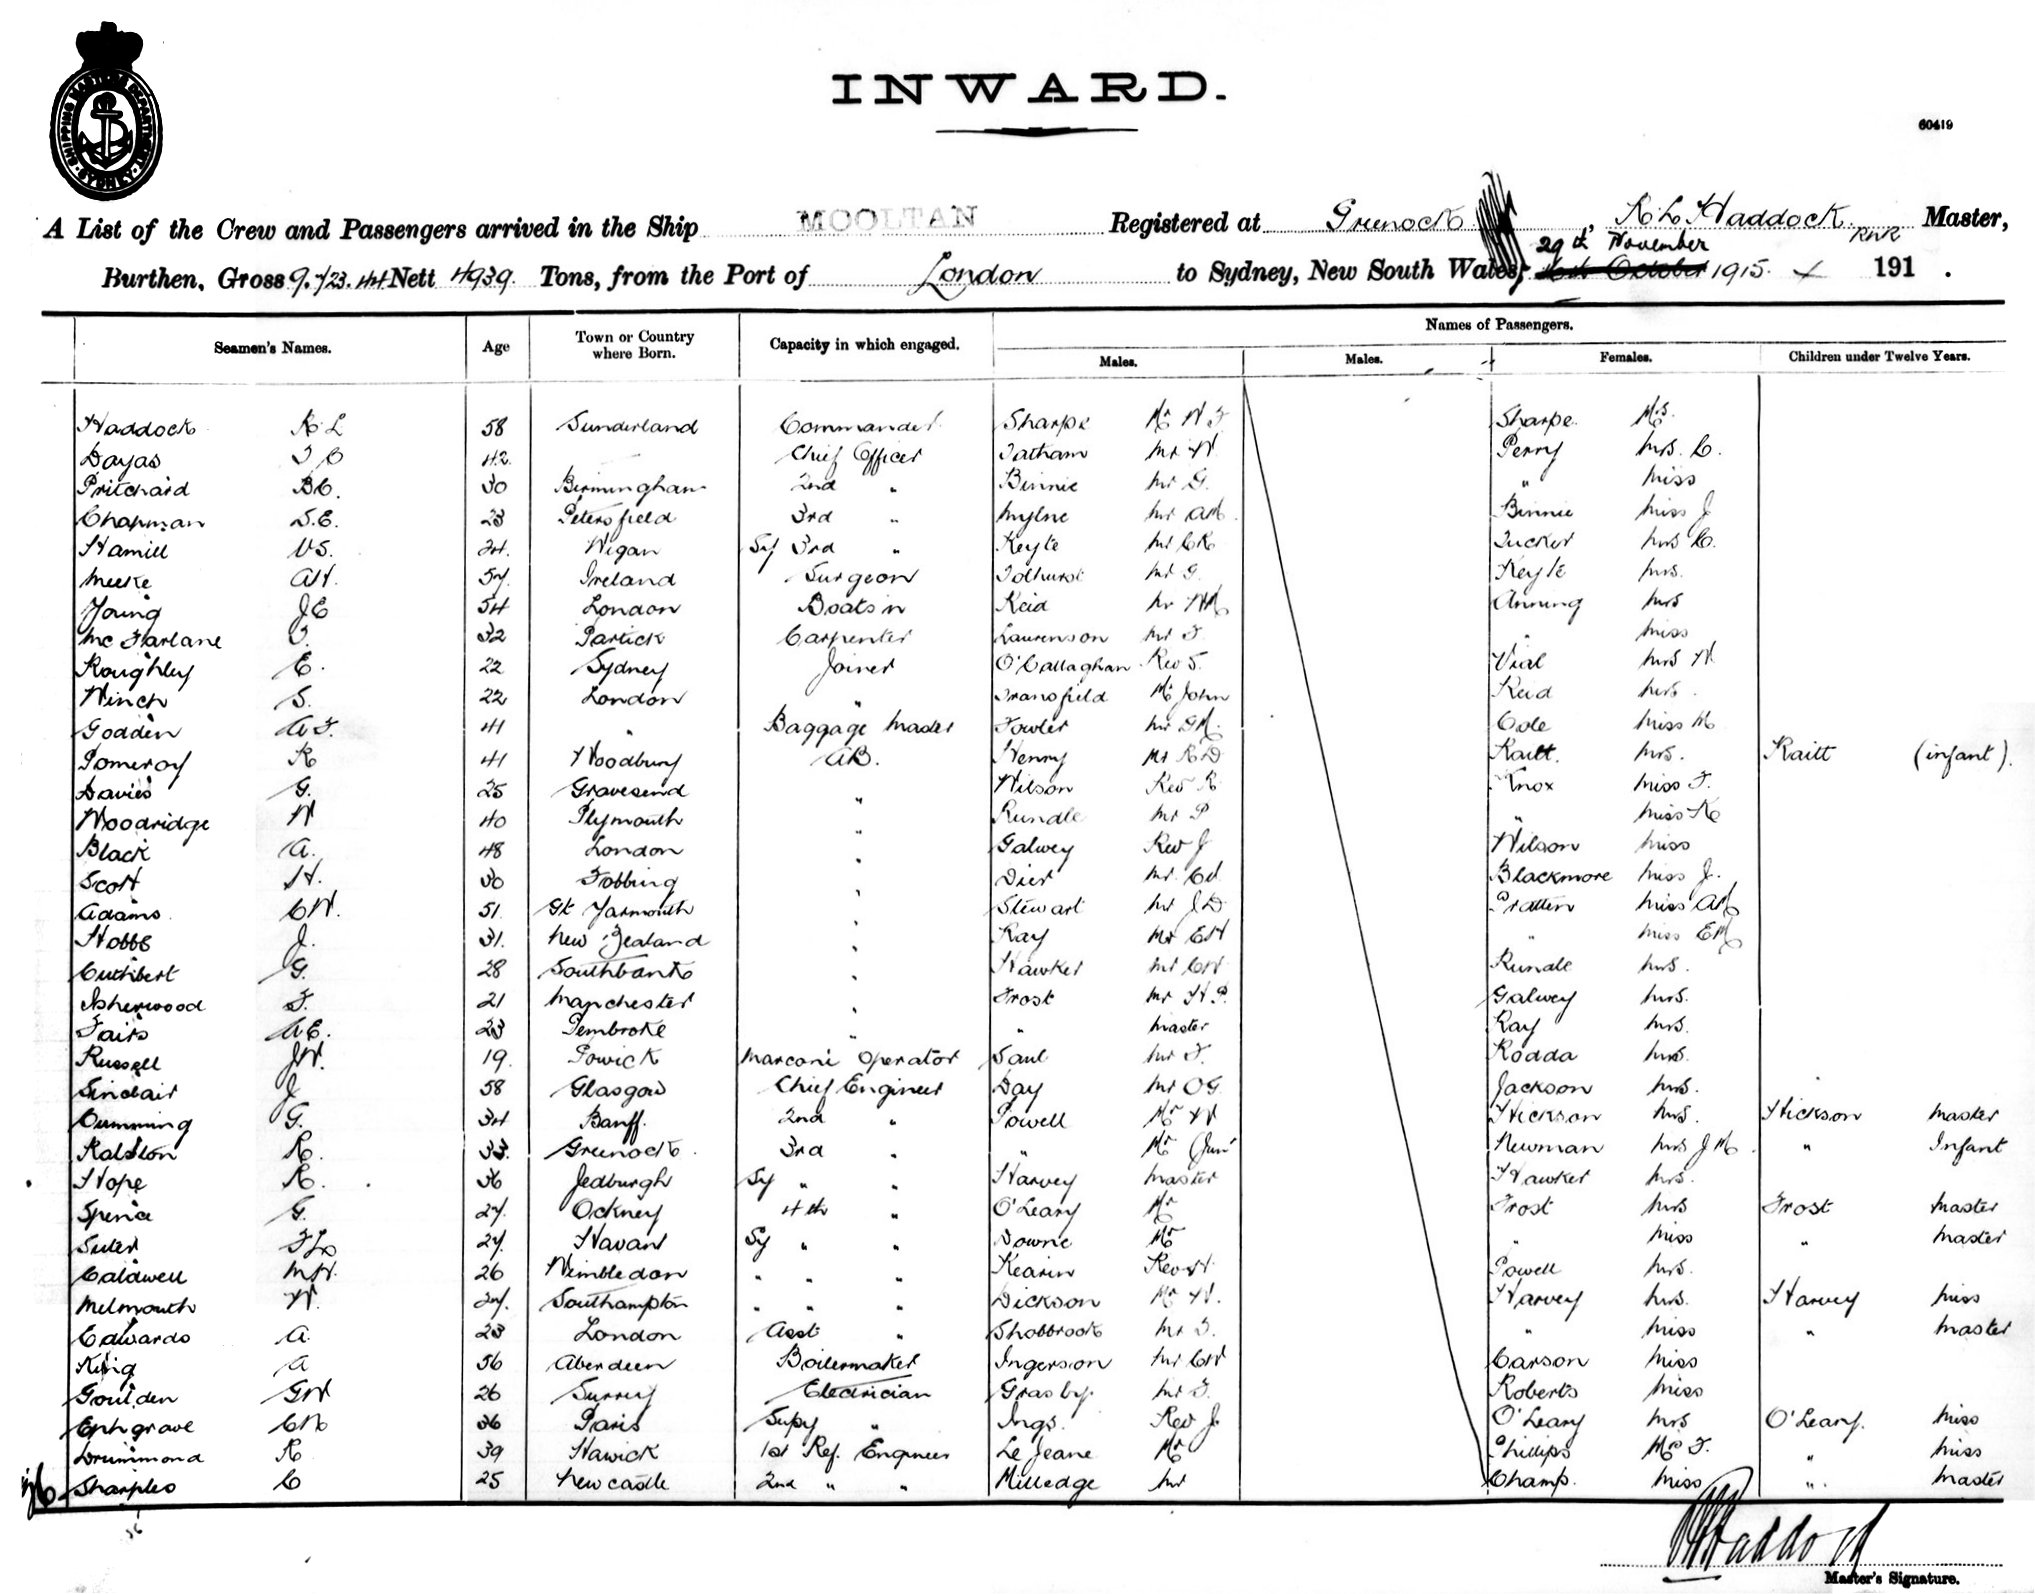 SHIPPING MASTER'S DEPARTMENT SYDNEY
INWARD.
60419
A List of the Crew and Passengers arrived in the Ship MOOLTAN Registered at Greenock, R L Haddock RNR Master,
29th November
Burthen, Gross 9.723.44 Nett 4939. Tons, from the Port of London to Sydney, New South Wales, October 1915. 191 .
Seamen's Names. Age Town or Country where Born. Capacity in which engaged. Names of Passengers.
Males. Males. Females. Children under Twelve Years.
Haddock R L 58 Sunderland Commander Sharpe Mr W F Sharpe Mrs
Dayas 42 Chief Officer Tatham Mr W Perry Mrs C.
Pritchard B.C. 30 Birmingham 2nd " Binnie Mr G. " Miss
Chapman S.E. 23 Petersfield 3rd " Mylne Mr AM Binnie Miss J
Hamill V.S. 24. Wigan Sy 3rd " Keyte Mr C R Tucker Mrs C.
Meeke AH. 57. Ireland Surgeon Tolhurst Mr G. Keyte Mrs.
Young J E 54 London Boats'n Reid Mr W M Anning Mrs
McFarlane 32 Partick Carpenter Laurenson Mr F " Miss
Roughley E. 22 Sydney Joiner O'Callaghan Rev S. Vial Mrs W
Winch S. 22 London " Transfield Mr John Reid Mrs.
Godden A F. 41 " Baggage Master Fowler Mr G M. Cole Miss M
Pomeroy R 41 Woodbury AB. Henry Mr R D Raitt. Mrs. Raitt (infant).
Davies G. 25 Gravesend " Wilson Rev R Knox Miss F.
Woodridge W 40 Plymouth " Rundle Mr P " Miss K
Black A. 48 London " Galwey Rev J Wilson Miss
Scott H. 30 Fobbing " Dier Mr. Blackmore Miss J.
Adams C W. 51. Gt Yarmouth " Stewart Mr J D Pratten Miss AM
Hobbs J. 31. New Zealand " Ray Mr E H " Miss E M
Cuthbert G. 28 Southbank " Hawker Mr C W Rundle Mrs.
Isherwood F. 21 Manchester " Frost Mr H P. Galwey Mrs.
Fairs A E. 23 Pembroke " " Master Ray Mrs.
Russell J W. 19. Powick Marconi Operator Saul Mr F. Rodda Mrs.
Sinclair J 58 Glasgow Chief Engineer Day Mr O G. Jackson Mrs.
Cumming G. 34 Banff. 2nd " Powell Mr W Hickson Mrs. Hickson Master
Ralston R. 33. Greenock. 3rd " " Mr (Junr Newman Mrs J M. " Infant
Hope R. 36 Jedburgh Sy " " Harvey Master Hawker Mrs.
Spence G. 27. Orkney 4th " O'Leary Mr Frost Mrs Frost Master
Suter 27. Havant Sy " " Downe Mr " Miss " Master
Caldwell M H. 26 Wimbledon " " " Kearin Rev H Powell Mrs.
Melmouth W. 27. Southampton " " " Dickson Mr W. Harvey Mrs. Harvey Miss
Edwards A. 23 London Asst " Shobbrook Mr F. " Miss " Master
King A 56 Aberdeen Boilermaker Ingerson Mr C W Carson Miss
Goulden G W 26 Surrey Electrician Grasby. Mr F. Roberts Miss
Ephgrave 36 Paris Supy " Ings. Rev J. O'Leary Mrs O'Leary. Miss
Drummond R 39 Hawick 1st Ref. Engineer Le Jeane Mr Phillips Mrs F. " Miss
Sharples C 25 Newcastle 2nd " " Milledge Mr Champ. Miss " Master
36
R L Haddock
Master's Signature.